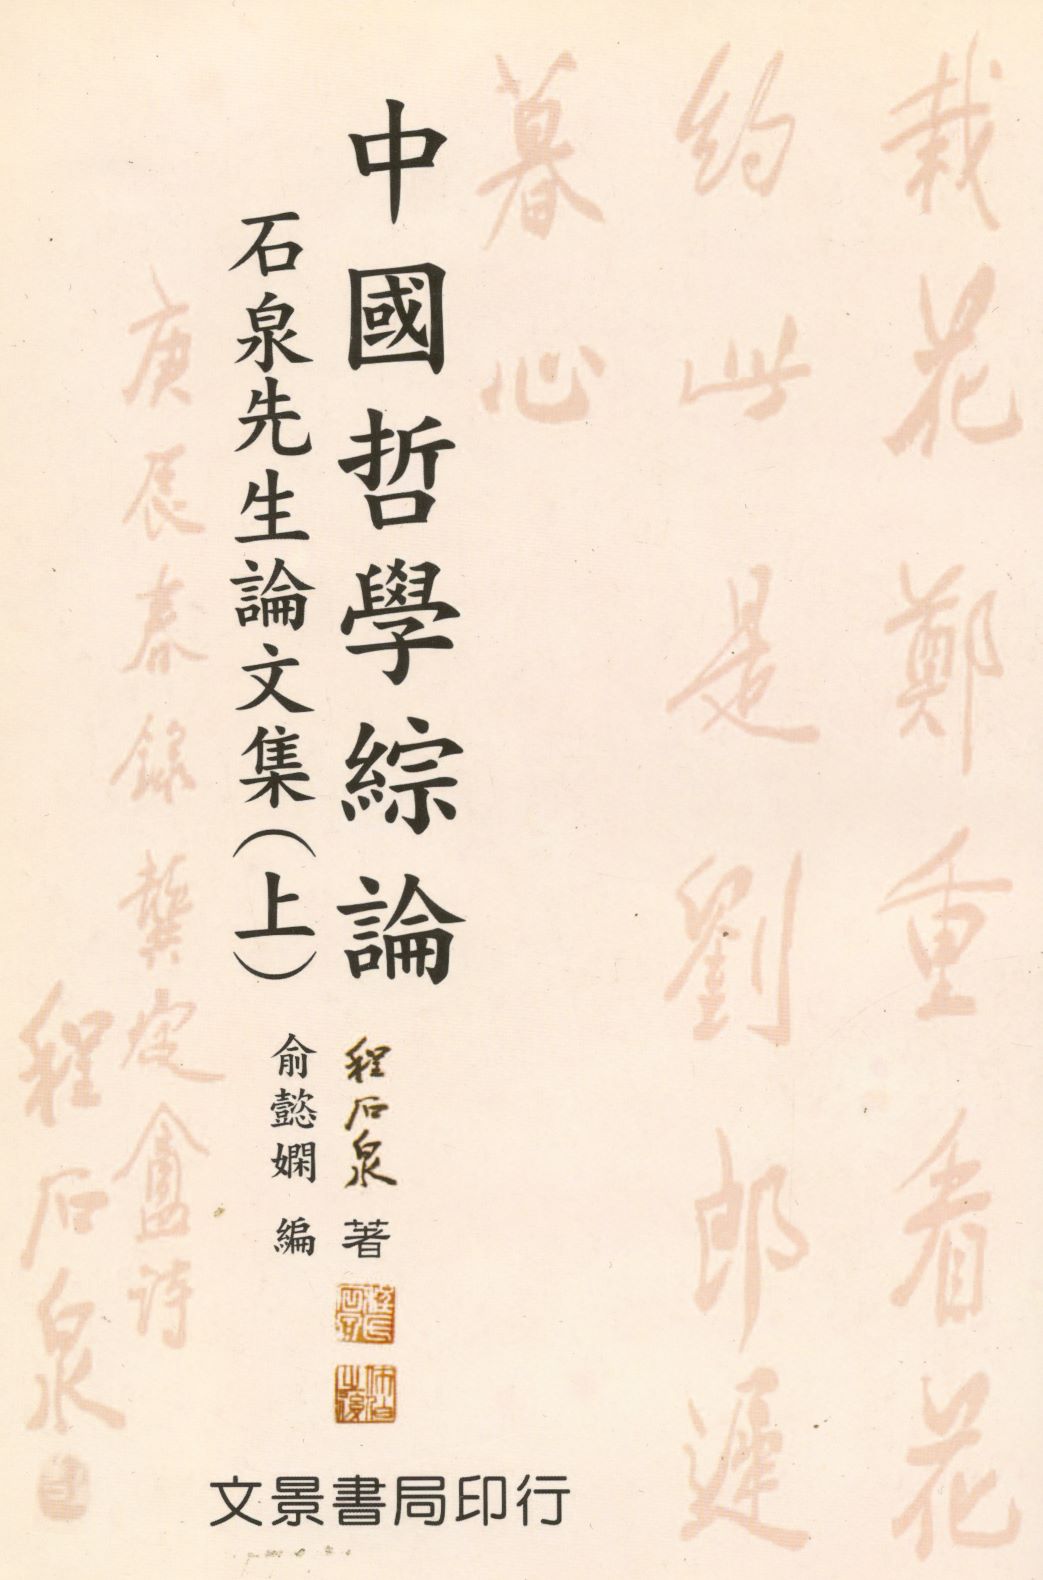 栽花鄭重看花
約此是劉郎遲
暮心
中國哲學綜論
石泉先生論文集(上)
程石泉 著
俞懿嫻 編
庚辰春錄龔定盦詩
程石泉
文景書局印行